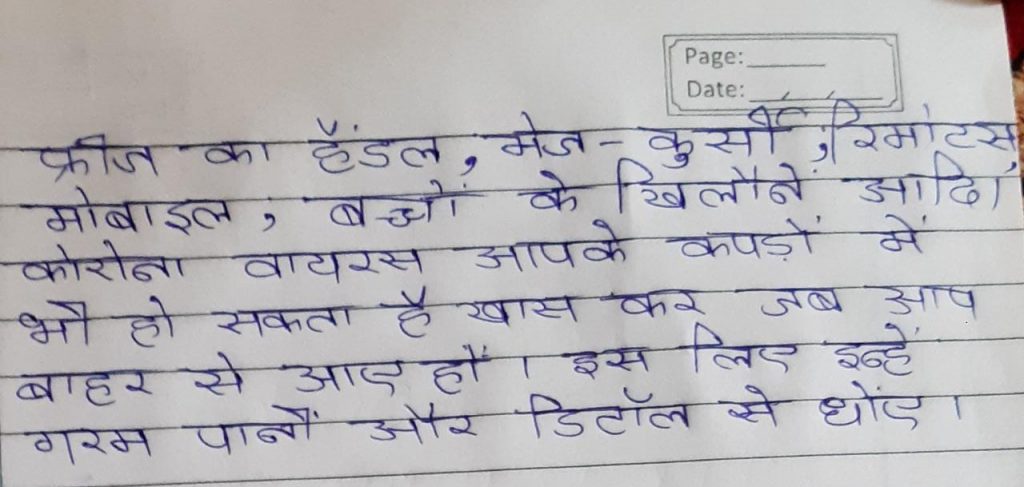 Page:
Date:
फ्रीज का हैंडल, मेज - कुर्सी, रिमोटस
मोबाइल, बच्चों के खिलौने आदि।
कोरोना वायरस आपके कपड़ों में
भी हो सकता है खास कर जब आप
बाहर से आए हों। इस लिए इन्हें
गरम पानी और डिटॉल से धोंए।